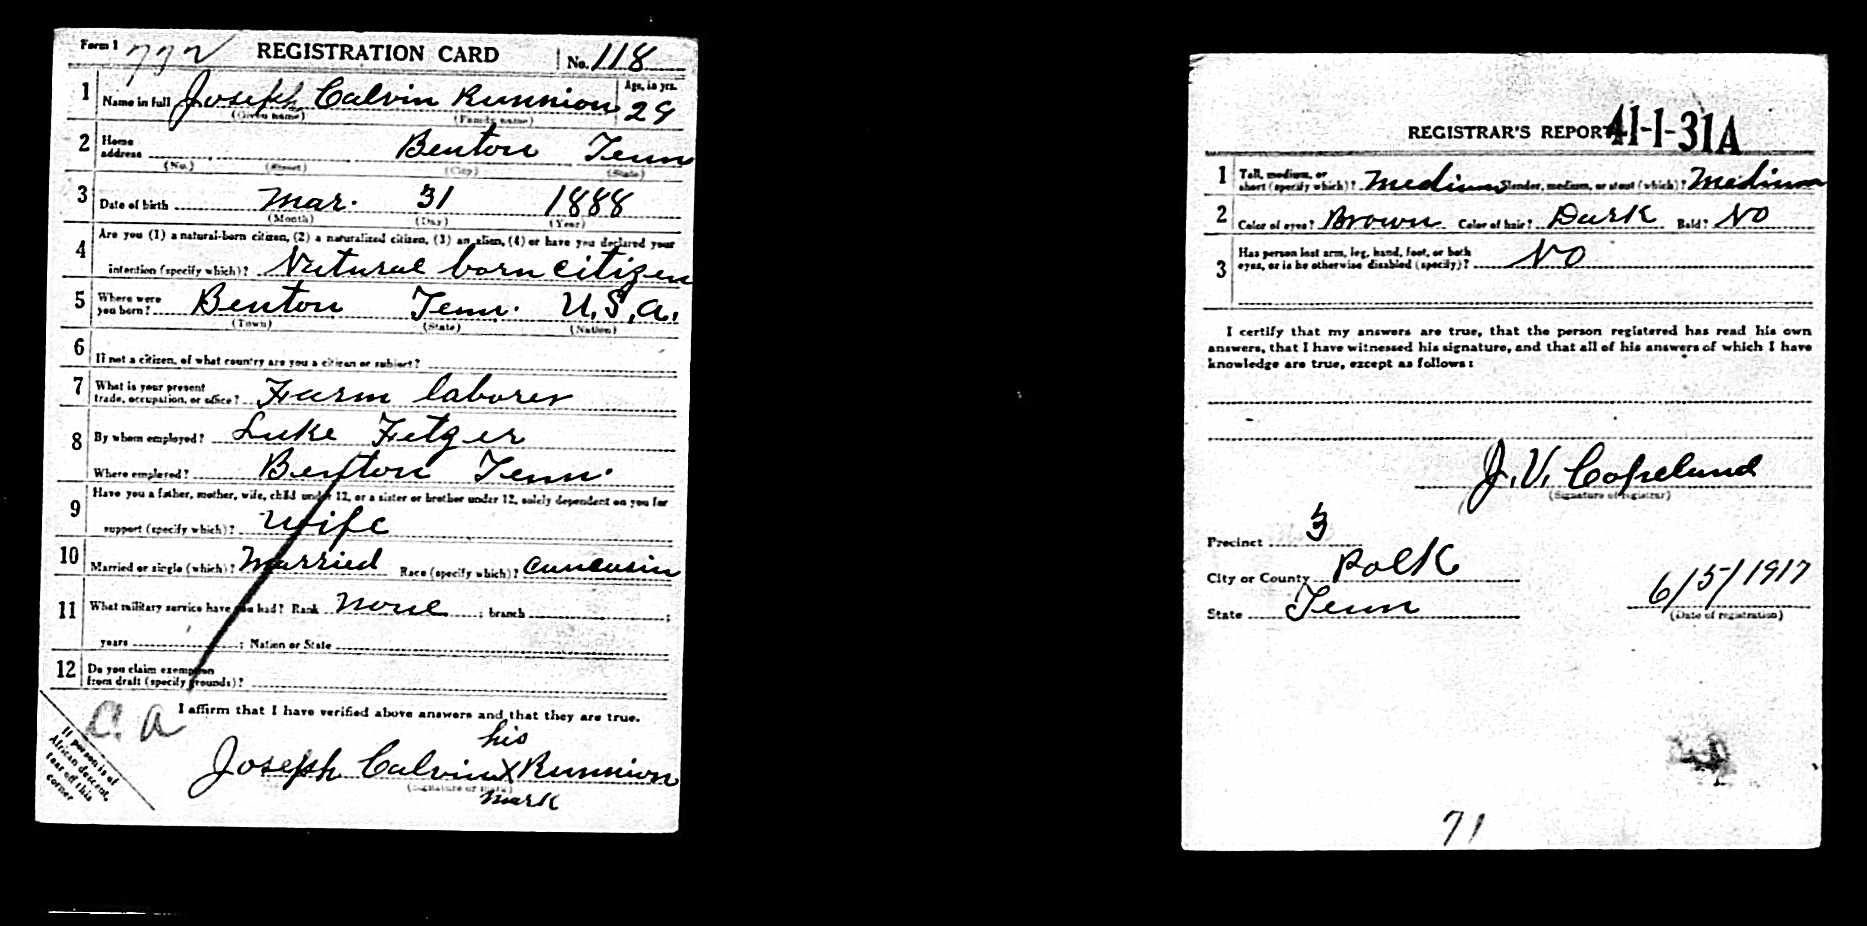 Form 1 772 REGISTRATION CARD No. 118
1 Name in full Joseph Calvin Runnion Age, in yrs. 29
(Given name) (Family name)
2 Home address Benton Tenn
(No.) (Street) (City) (State)
3 Date of birth Mar. 31 1888
(Month) (Day) (Year)
4 Are you (1) a natural-born citizen, (2) a naturalized citizen, (3) an alien, (4) or have you declared your
intention (specify which)? Natural born citizen
5 Where were you born? Benton Tenn. U.S.A.
(Town) (State) (Nation)
6 If not a citizen, of what country are you a citizen or subject?
7 What is your present trade, occupation, or office? Farm laborer
8 By whom employed? Luke Fetzer
Where employed? Benton Tenn.
9 Have you a father, mother, wife, child under 12, or a sister or brother under 12, solely dependent on you for
support (specify which)? Wife
10 Married or single (which)? Married Race (specify which)? Caucasin
11 What military service have you had? Rank None ; branch ;
years ; Nation or State
12 Do you claim exemption
from draft (specify grounds)?
I affirm that I have verified above answers and that they are true.
C. A
his
Joseph Calvin X Runnion
(Signature or mark)
mark
If person is of
African descent,
tear off this
corner
REGISTRAR'S REPORT 41-1-31A
1 Tall, medium, or short (specify which)? Medium Slender, medium, or stout (which)? Medium
2 Color of eyes? Brown Color of hair? Dark Bald? No
3 Has person lost arm, leg, hand, foot, or both
eyes, or is he otherwise disabled (specify)? No
I certify that my answers are true, that the person registered has read his own
answers, that I have witnessed his signature, and that all of his answers of which I have
knowledge are true, except as follows:
J. V. Copeland
(Signature of registrar)
Precinct 3
City or County Polk
State Tenn 6/5/1917
(Date of registration)
71